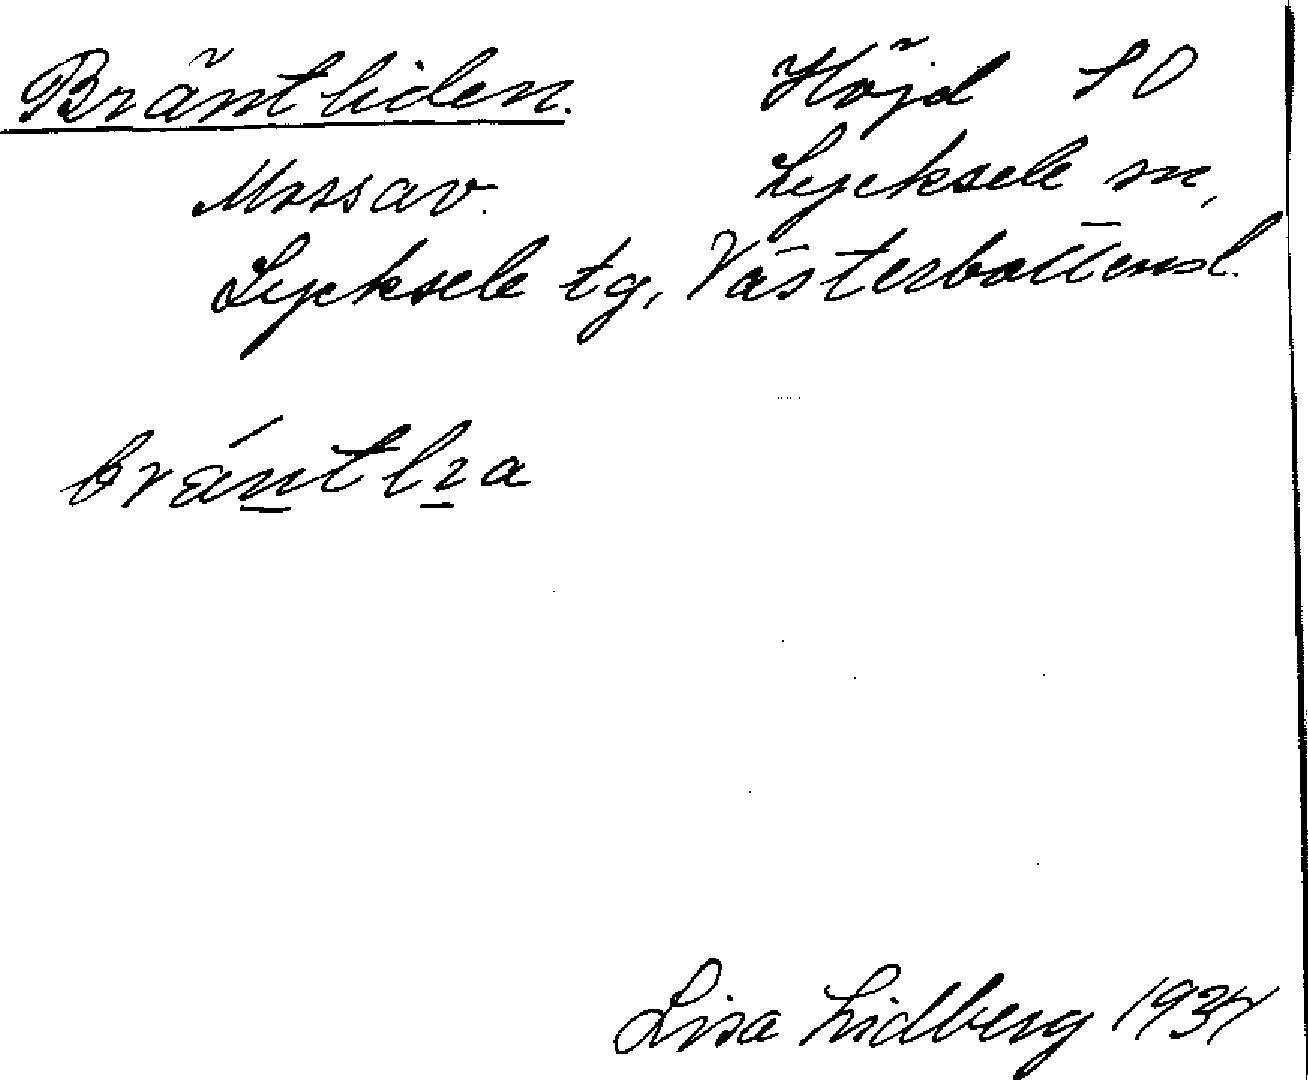 Bräntliden. Höjd SO
Mossav. Lycksele sn,
Lycksele tg, Västerbottensl.
bräntlıa
Lisa Lidberg 1937